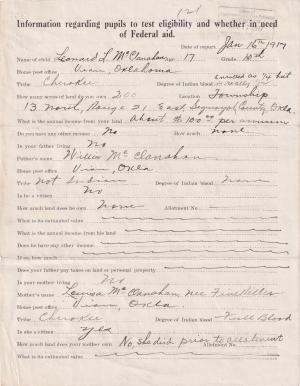 121
Information regarding pupils to test eligibility and whether in need
of Federal aid.
Date of report, Jan 16th 1917
Name of child, Leonard L. McClanahan 17 Grade, 10th
Home post office Vian, Oklahoma
Tribe Cherokee Degree of Indian blood enrolled as 1/4 but
How many acres of land do you own? 200 Location Township
13 Nord, Range 21 East Sequoyah County Okla.
What is the annual income from your land? About $100.00 per annum
Do you have any other income? No How much none
Is your father living? No
Father's name Willis McClanahan
Home post office Vian, Okla
Tribe Not Indian Degree of Indian blood none
Is he a citizen No
How much land does he own none Allotment No.
What is its estimated value
What is the annual income from his land
Does he have any other income
If so, how much
Does your father pay taxes on land or personal property
Is your mother living No
Mother's name Louisa McClanahan nee Fivekiller
Home post office Vian, Okla.
Tribe Cherokee Degree of Indian blood Full Blood
Is she a citizen yes
How much land does your mother own No, she died prior to allotment
What is its estimated value Allotment No.